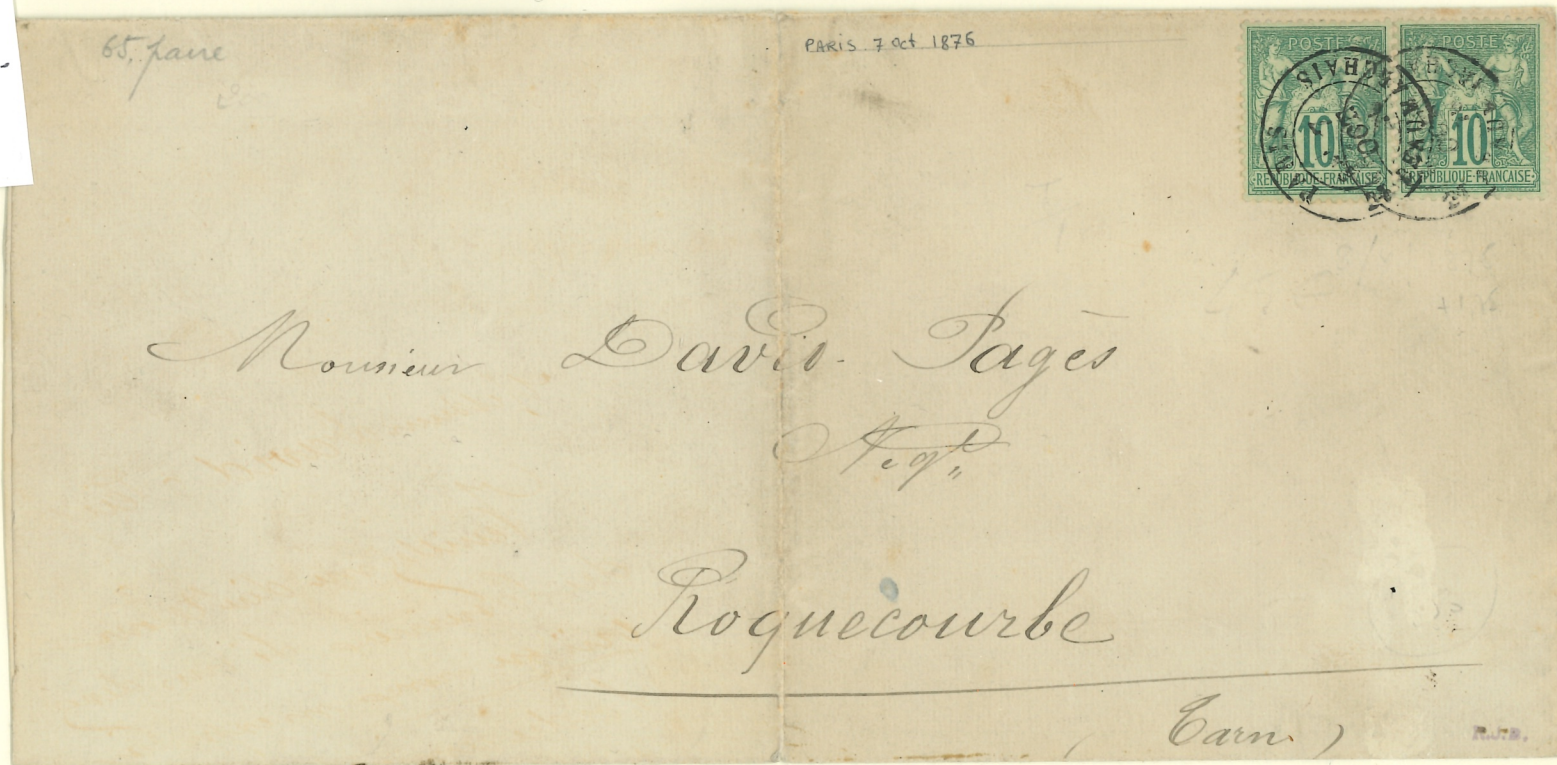 65. paire
PARIS 7 oct 1876
POSTE POSTE
10 10
REPUBLIQUE FRANCAISE REPUBLIQUE FRANCAISE
PARIS
Monsieur David Pagès
Négt
Roquecourbe
(Tarn)
R.J.B.